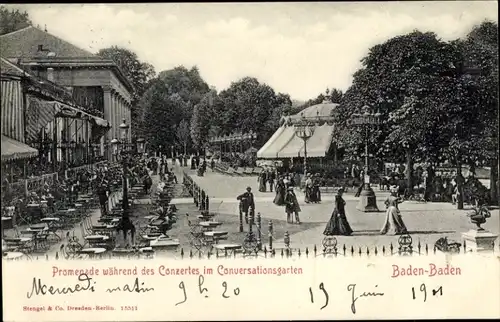 Promenade während des Conzertes im Conversationsgarten Baden-Baden
Mercredi matin 9 h. 20 19 juin 1901
Stengel & Co. Dresden-Berlin. 15511